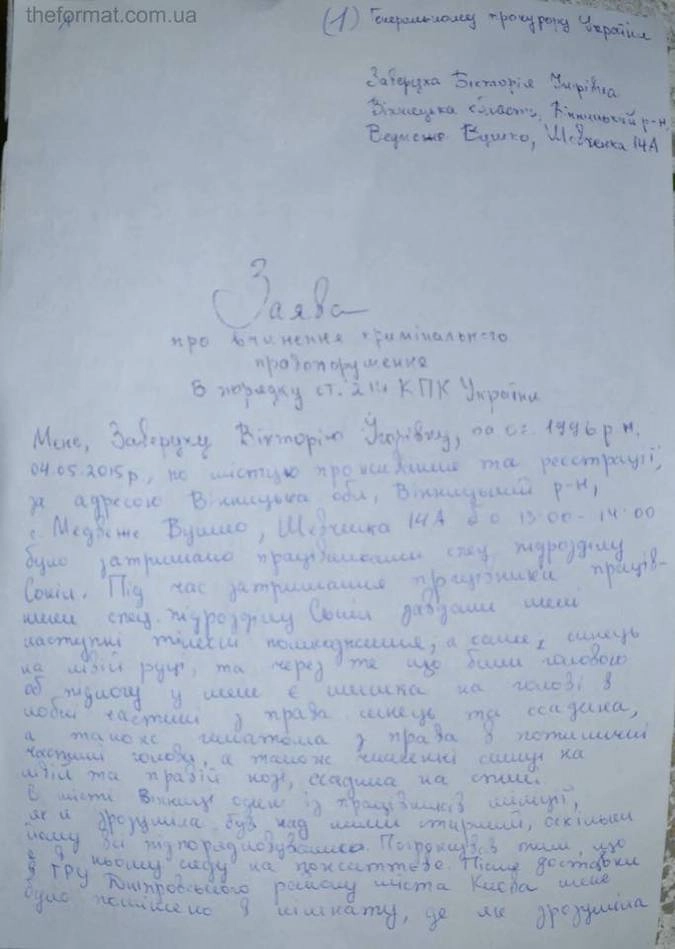 theformat.com.ua
(1) Генеральному прокурору України
Заверуха Вікторія Ігорівна
Вінницька область, Вінницький р-н,
Ведмеже Вушко, Шевченка 14А
Заява
про вчинення кримінального
правопорушення
В порядку ст. 214 КПК України
Мене, Заверуху Вікторію Ігорівну, 1996 р н.
04.05.2015р, по місцю проживання та реєстрації,
за адресою Вінницька обл, Вінницький р-н,
с. Медвеже Вушко, Шевченка 14А о 13:00-14:00
було затримано працівниками спец підрозділу
Сокіл. Під час затримання працівники праців-
ники спец. підрозділу Сокіл завдали мені
наступні тілесні пошкодження, а саме, синець
на лівій руці, та через те що били головою
об підлогу у мене є шишка на голові в
лобній частині з права синець та ссадина,
а також гематома з права в потиличній
частині голови, а також численні синці на
лівій та правій нозі, ссадина на спині.
В місті Вінниці один із працівників міліції,
як я зрозуміла був над ними старший, оскільки
йому всі підпорядковувались. Погрожував тим, що
я в ньому сяду на пожиттєве. Після доставки
в ГРУ Дніпровського району міста Києва мене
було поміщено в кімнату, де як зрозуміла